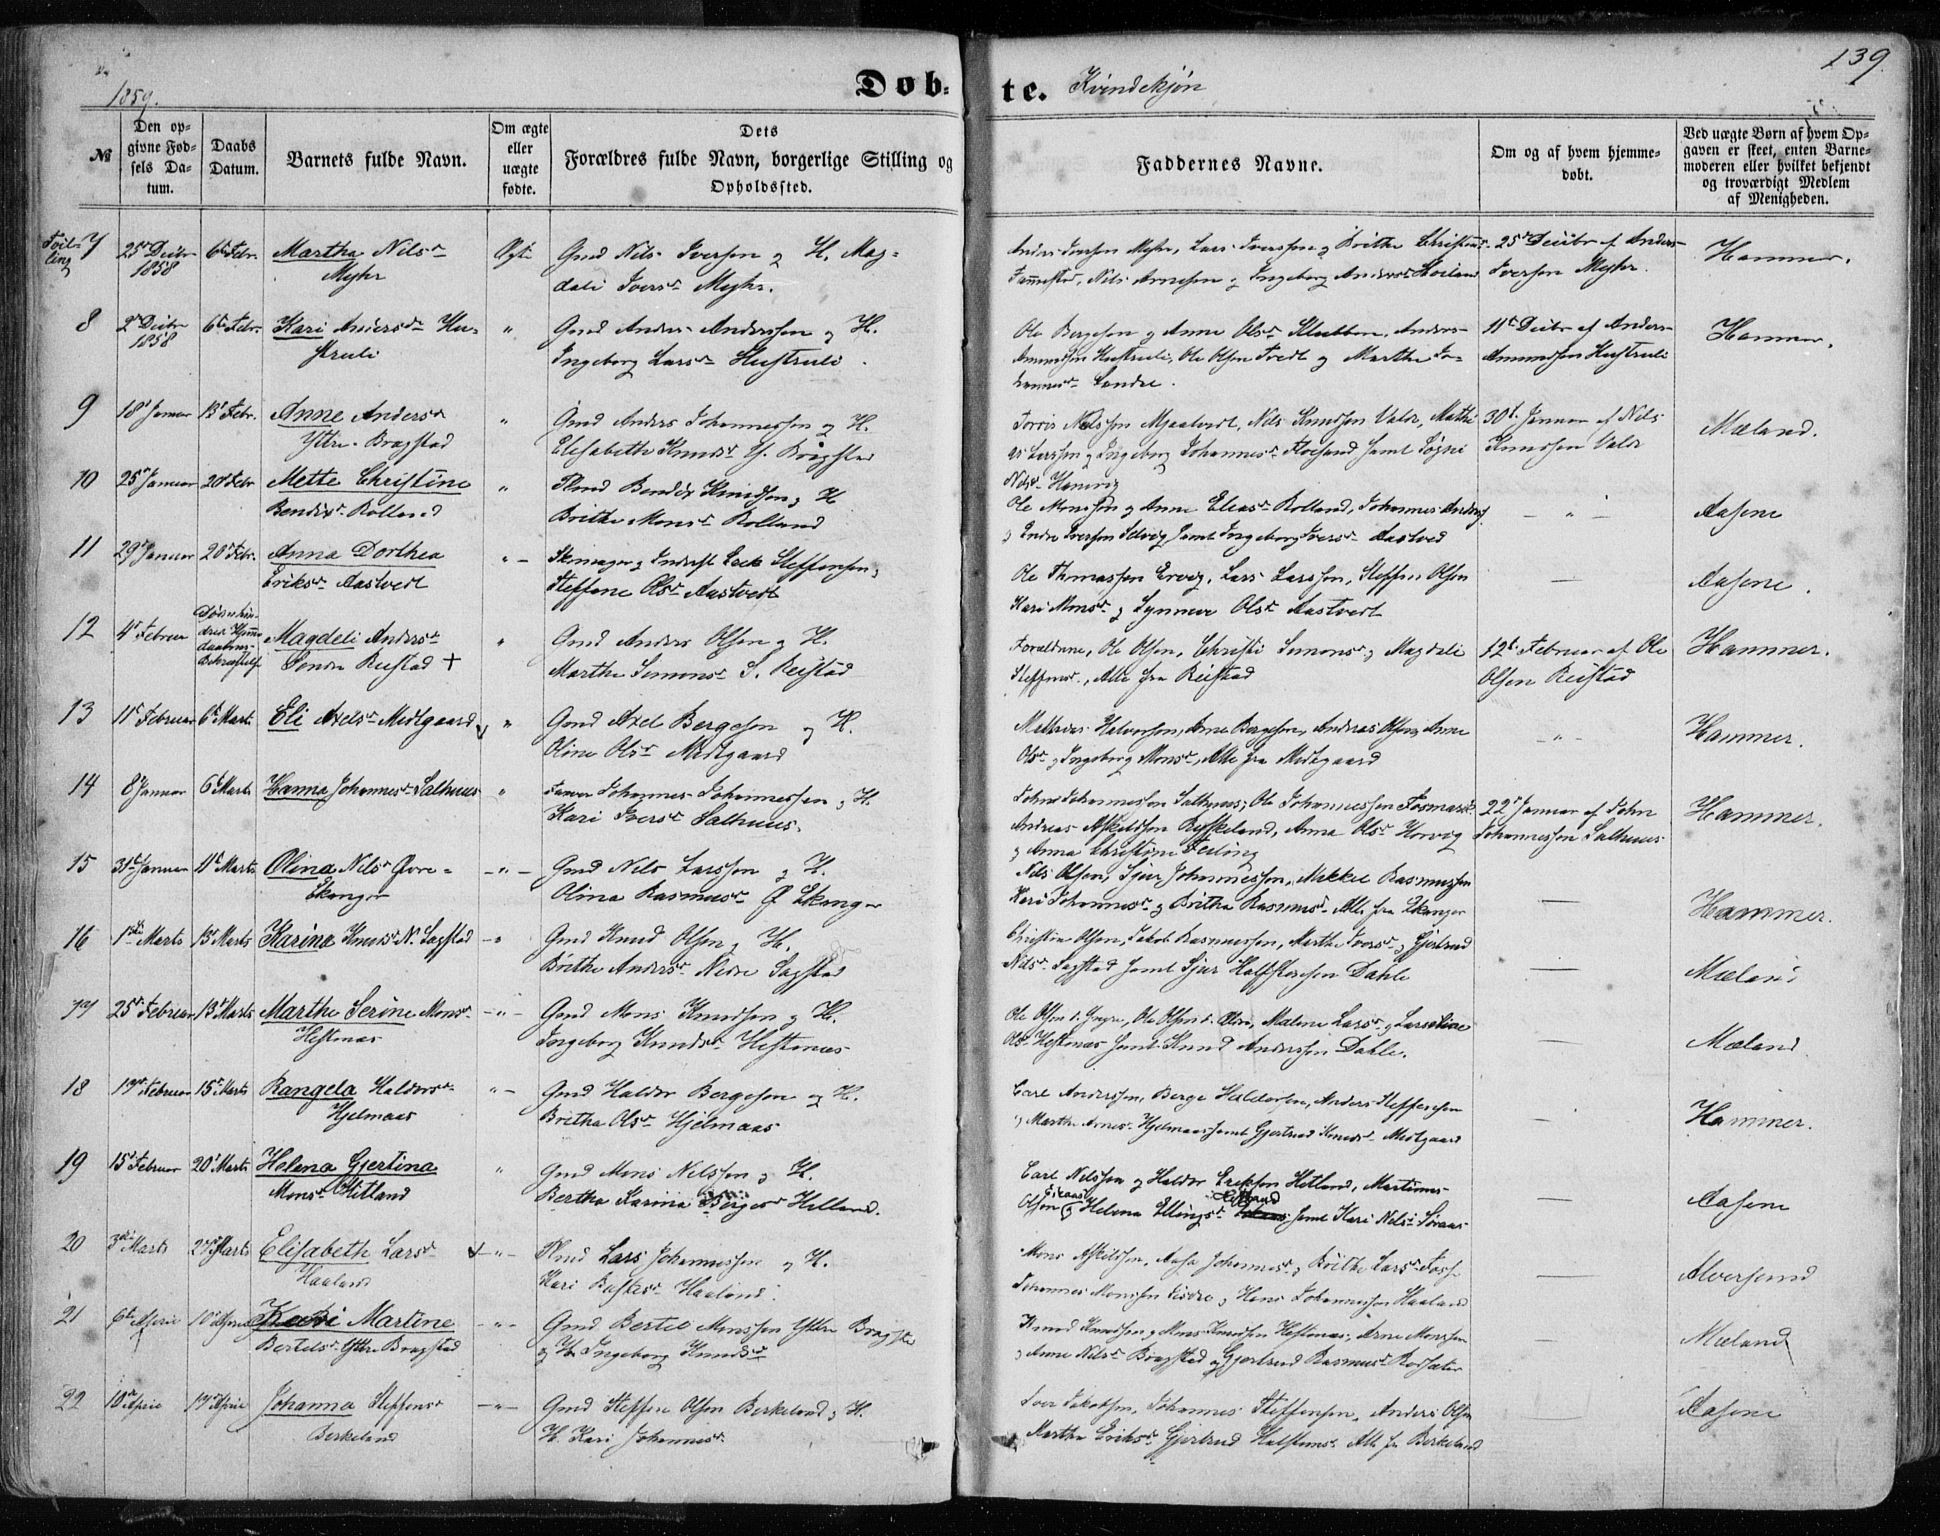 1859.
Døb-
te. Kvindekjøn
139.
№
Den op-
givne Fød-
sels Da-
tum.
Daabs
Datum.
Barnets fulde Navn.
Om ægte
eller
uægte
fødte.
Dets
Forældres fulde Navn, borgerlige Stilling og
Opholdssted.
Faddernes Navne.
Om og af hvem hjemme-
døbt.
Ved uægte Børn af hvem Op-
gaven er skeet, enten Barne-
moderen eller hvilket bekjendt
og troværdigt Medlem
af Menigheden.
Tvil-
ling
7 25de Decbr 1858 6te Febr. Martha Nilsdr
Myhr
Ægte
Gmd Nils Iversen og H. Mag-
dali Iversdr Myhr.
Anders Iversen Myhr, Lars Iversen og Brithe Christens
Nils Arnesen og Ingeborg Andersdr
25de Decbr af Anders
Iversen Myhr.
Hammer.
8 2den Decbr 1858 6te Febr. Kari Andersdr Hu-
struli
"
Gmd Anders Anderssen og H.
Ingeborg Larsdr Hustruli.
Ole Bergesen og Anne Olsdr Klubben, Anders
Amundsen Hustruli, Ole Olsen Tvedt og Marthe Jo-
hannesdr Søndre.
11te Decbr af Anders
Amundsen Hustruli
Hammer.
9 18de Januar 13de Febr. Anne Andersdr
Yttre Bragstad
"
Gmd Anders Johannessen og H.
Elisabethe Knudsdr Y. Bragstad
Torris Nilssen Mjaatvedt, Nils Knudsen Valde, Mathi-
as Larssen og Ingeborg Johannesdr samt Søgni
Nilsdr Hanevig
30te Januar af Nils
Knudsen Valde
Mæland.
10 25de Januar 20de Febr Mette Christine
Bendixdr Rolland
"
Plmd Bendix Knudsen og H
Brithe Monsdr Rolland
Ole Monssen og Anne Eliasdr Rolland, Johannes Anders.
og Endre Iversen Selvig samt Ingeborg Iversdr Aastved
- " -
Aasene
11 29de Januar 20de Febr. Anna Dorthea
Eriksdr Aastvedt
"
Erik Steffensen og
Steffene Olsdr Aastvedt
Ole Thomassen Ervig, Lars Larssen, Steffen Olsen
Kari Monsdr og Synneve Olsdr Aastvedt
—
Aasene.
12 4de Februar
Magdeli Andersdr
Søndre Reistad +
"
Gmd Anders Olsen og H.
Marthe Simonsdr S. Reistad
Forældrene, Ole Olsen, Christi Simonsdr og Magdeli
Steffensdr, Alle fra Reistad
12te Februar af Ole
Olsen Reistad
Hammer.
13 11te Februar 6te Marts Eli Axelsdr Midtgaard
"
Gmd Axel Bergesen og H.
Oline Olsdr Midtgaard
Mathias Halvorsen, Arne Bergesen, Andreas Olsen, Anne
Olsdr og Ingeborg Monsdr, Alle fra Midtgaard
- " -
Hammer.
14 8de Januar 6te Marts Hanna Johannesdr Salhuus
"
Johannes Johannessen og H.
Kari Iversdr Salhuus.
John Johannessen Salhuus, Ole Johannessen Fosmark
Andreas Askildsen Rysseland, Anna Olsdr Horvig
og Anna Christine
22de Januar af John
Johannessen Salhuus
Hammer.
15 31te Januar 11te Marts Olina Nilsdr Øvre
Ekanger
- " -
Gmd Nils Larssen og H.
Olina Rasmusdr Ø Ekanger
Nils Olsen, Sjur Johannessen, Mikkel Rasmussen
Kari Johannesdr og Britha Rasmusdr Alle fra Ekanger
—
Hammer.
16 1ste Marts 13de Marts Karina Knudsdr N. Sagstad
- "
Gmd Knud Olsen og H.
Brithe Andersdr Nedre Sagstad
Christian Olsen, Jakob Rasmussen, Marthe Iversdr og Gjertrud
Nilsdr Sagstad samt Sjur Halstensen Dahle
—
Mæland
17 25de Februar 13de Marts Marthe Serine Monsdr
Hestenæs
- " -
Gmd Mons Knudsen og H.
Ingeborg Knudsdr Hestenæs
Ole Olsen d. Yngre, Ole Olsen d. Ældre, Malene Larsdr og Larsine
Olsdr Hestenæs samt Knud Anderssen Dahle.
—
Mæland
18 17de Februar 15de Marts Rangela Haldorsdr
Hjelmaas
" -
Gmd Haldor Bergesen og H.
Britha Olsdr Hjelmaas
Carl Anderssen, Berge Haldorsen, Anders Steffensen
og Marthe Arnesdr Hjelmaas samt Gjertrud Knudsdr Midtgaard
—
Hammer.
19 15de Februar 20de Marts Helena Gjertina
Monsdr Hitland
"
Gmd Mons Nilssen og H.
Bertha Karina Bergesdr Hitland.
Carl Nilssen og Haldor Eriksen Hetland, Martinus
Olsen og Helena Ellingsdr Hitland samt Kari Nilsdr Soraas
—
Aasene
20 3die Marts 27de Marts Elisabeth Larsdr
Haaland
- " -
Plmd Lars Johannessen og H.
Kari Haaland.
Mons Askildsen, Aasa Johannesdr og Brithe Larsdr Fosse
Johannes Monssen og Hans Johannessen Haaland
—
Alversund
21 6te April 10de April Kari Martine
Bertelsdr Yttre Bragstad
- " -
Gmd Bertel Monssen Yttre Bragstad
og H. Ingeborg Knudsdr
Knud Knudsen og Mons Knudsen Hestenæs, Arne Monssen
og Anne Nilsdr Bragstad og Gjertrud Rasmusdr
—
Mæland
22 10de April 17de April Johanna Steffensdr
Berkeland
- " -
Gmd Steffen Olsen Berkeland og H.
H. Kari Johannesdr.
Iver Jakobsen, Johannes Steffensen, Anders Olsen
Martha Eriksdr, Gjertrud Halstensdr Alle fra Berkeland
—
Aasene